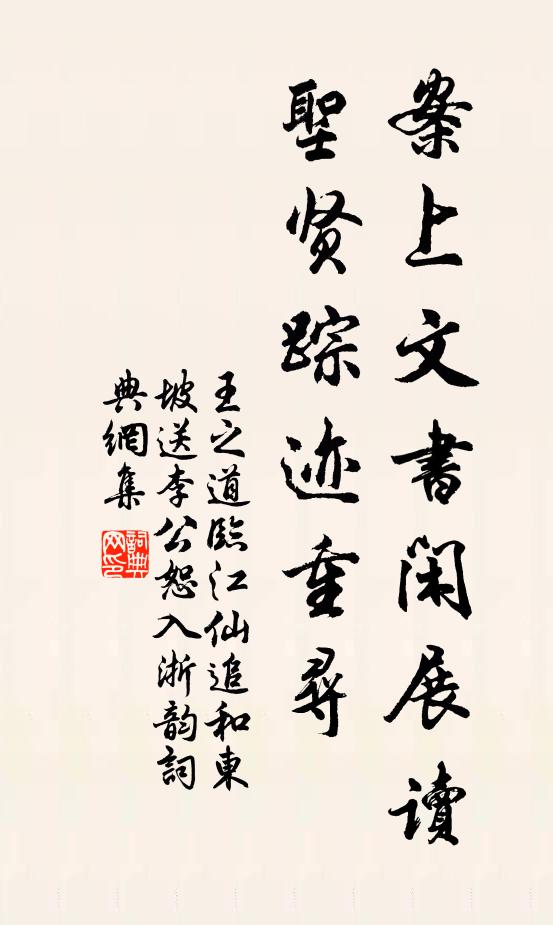 案上文書閑展读
聖贤踪迹重尋
王之道臨江仙追和東
坡送李公恕入浙韵詞
典網集
詞典网印